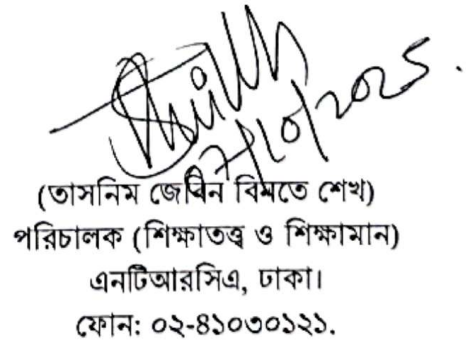 07/10/2025.
(তাসনিম জেবিন বিনতে শেখ)
পরিচালক (শিক্ষাতত্ত্ব ও শিক্ষামান)
এনটিআরসিএ, ঢাকা।
ফোন: ০২-৪১০৩০১২১.